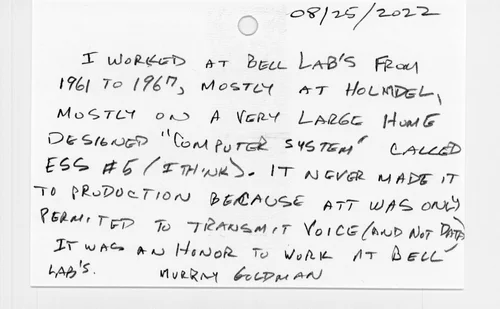 08/25/2022
I WORKED AT BELL LAB'S FROM
1961 TO 1967, MOSTLY AT HOLMDEL,
MOSTLY ON A VERY LARGE HOME
DESIGNED "COMPUTER SYSTEM" CALLED
ESS #5 (I THINK). IT NEVER MADE IT
TO PRODUCTION BECAUSE ATT WAS ONLY
PERMITED TO TRANSMIT VOICE (AND NOT DATA)
IT WAS AN HONOR TO WORK AT BELL
LAB'S. MURRAY GOLDMAN